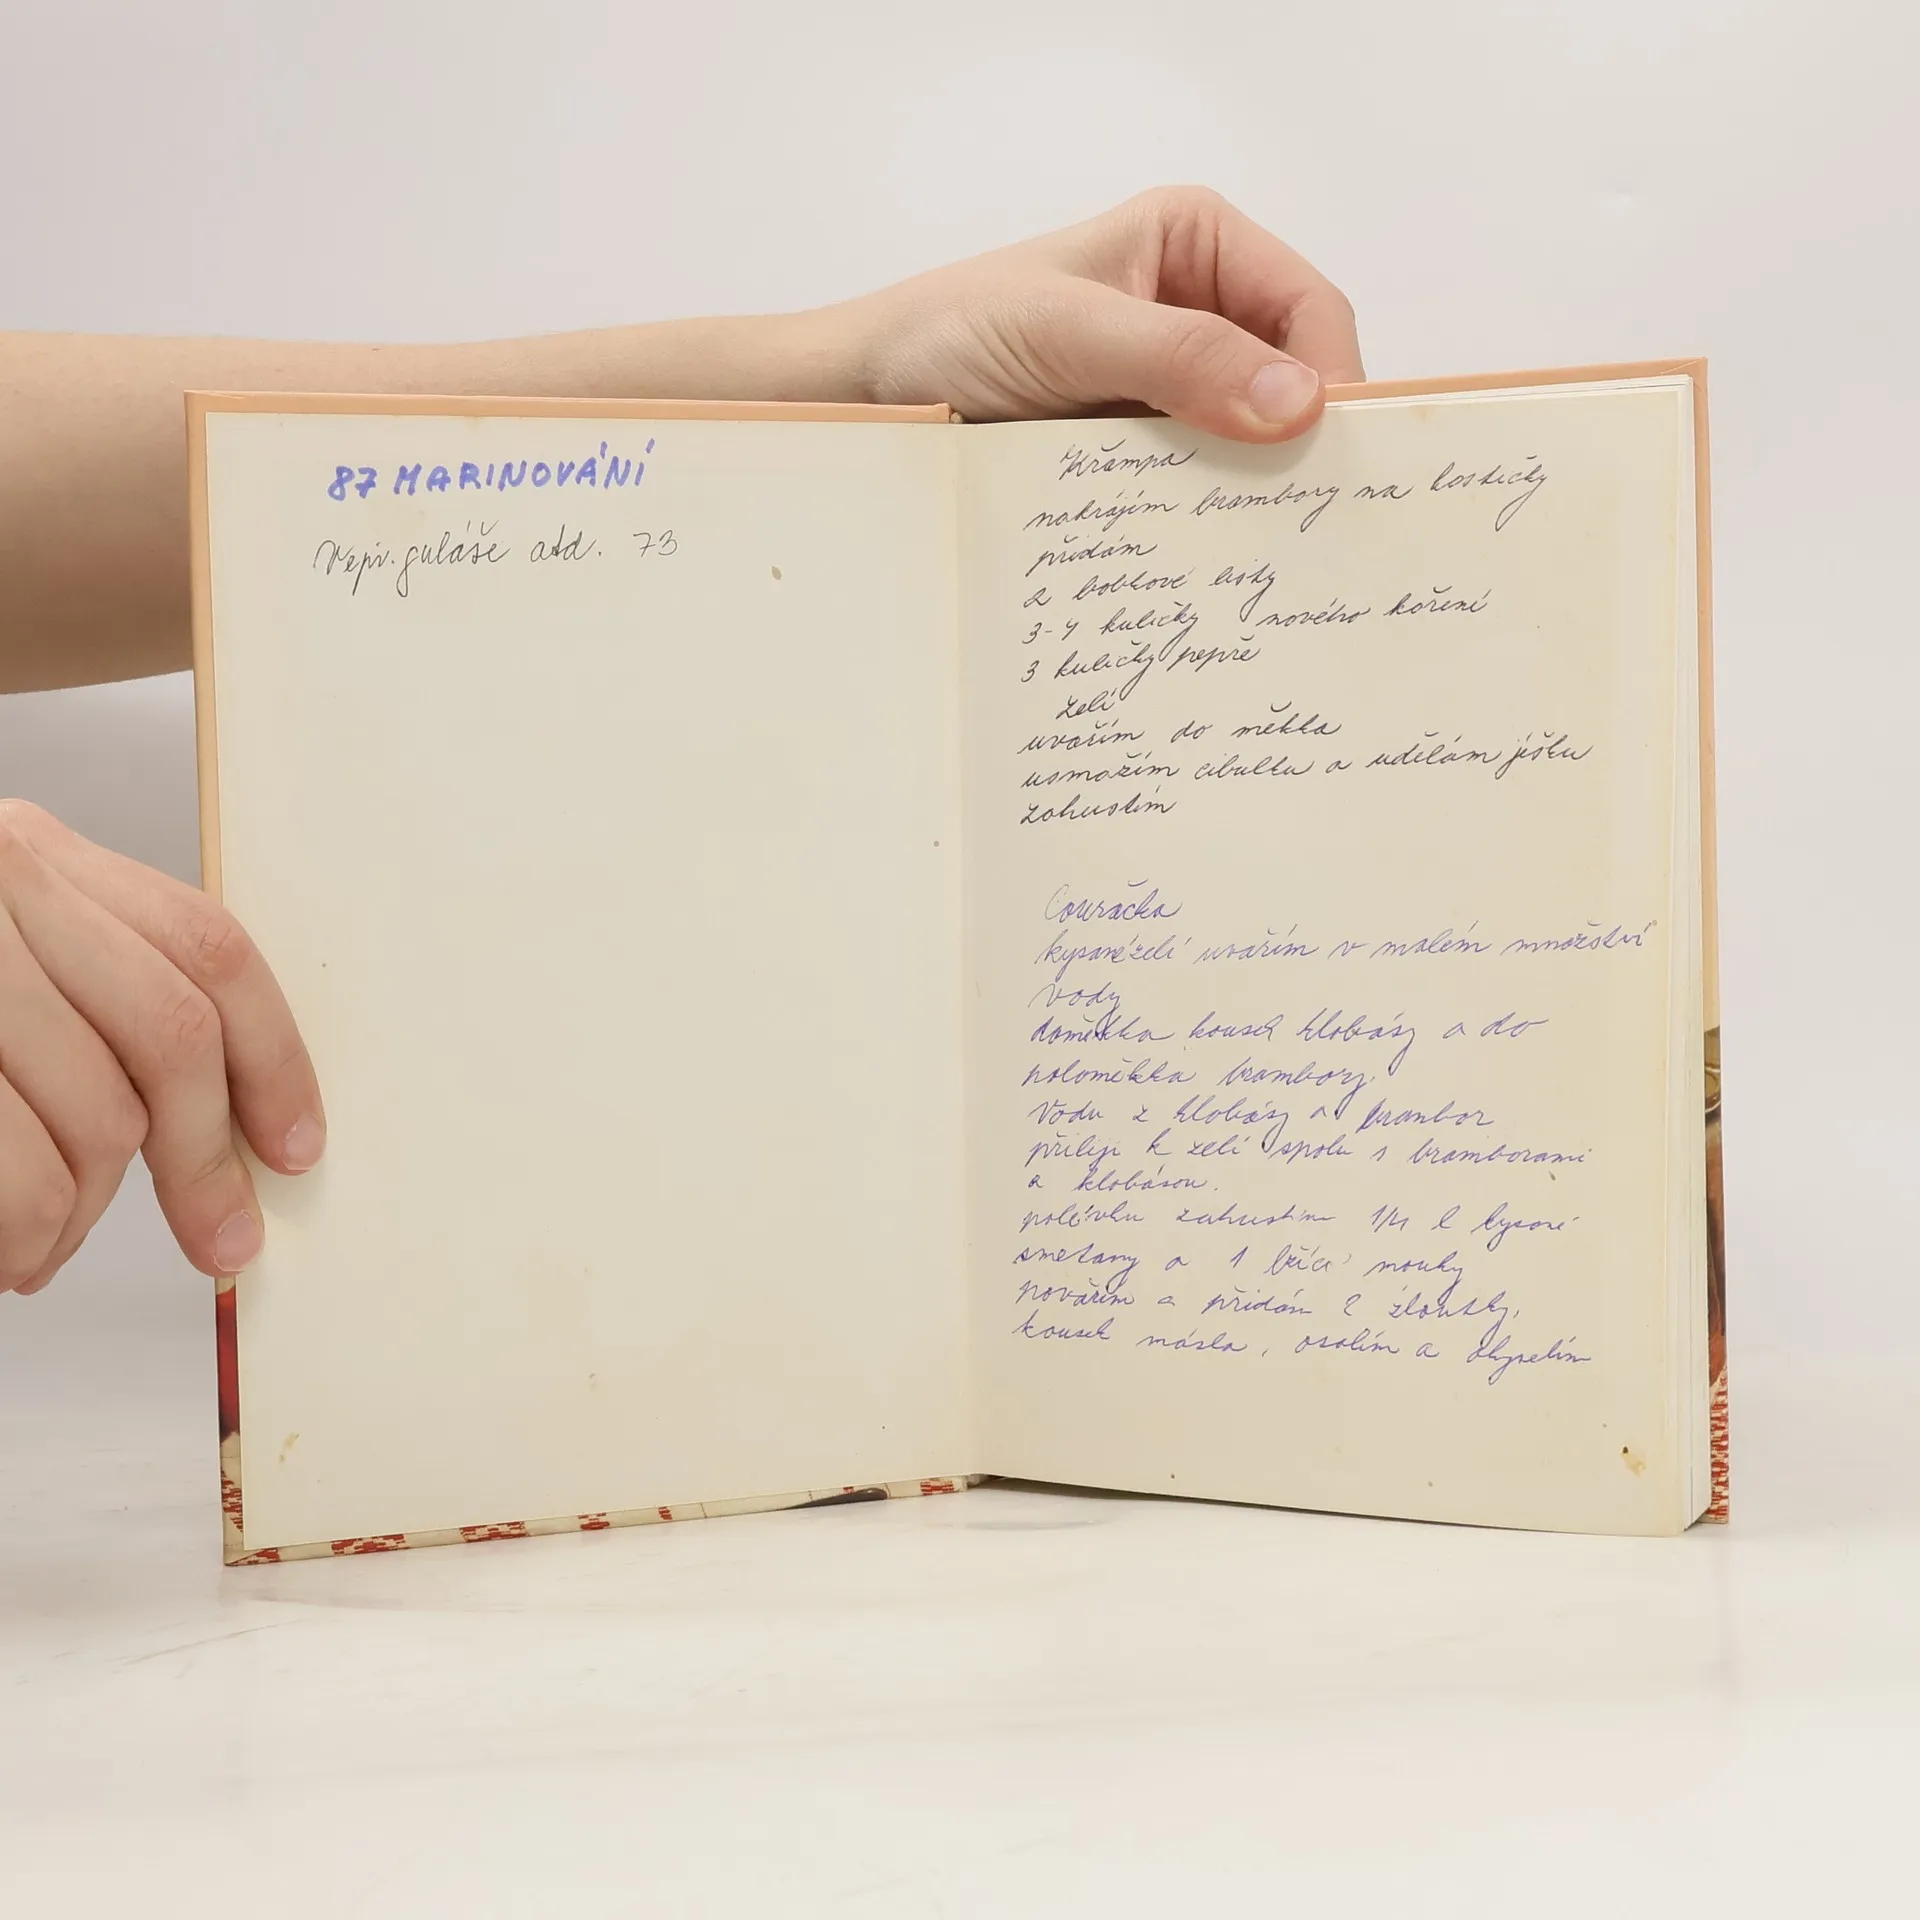 87 MARINOVÁNÍ
Vepř. guláše atd. 73
Křampa
nakrájím brambory na kostičky
přidám
2 bobkové listy
3-4 kuličky nového koření
3 kuličky pepře
zelí
uvařím do měkka
usmažím cibulku a udělám jíšku
zahustím
Couračka
kysané zelí uvařím v malém množství
vody
doměkka kousek klobásy a do
poloměkka brambory.
Vodu z klobásy a brambor
přiliji k zelí spolu s bramborami
a klobásou.
polévku zahustím 1/4 l kysané
smetany a 1 lžící mouky
povařím a přidám 2 žloutky,
kousek másla, osolím a okyselím